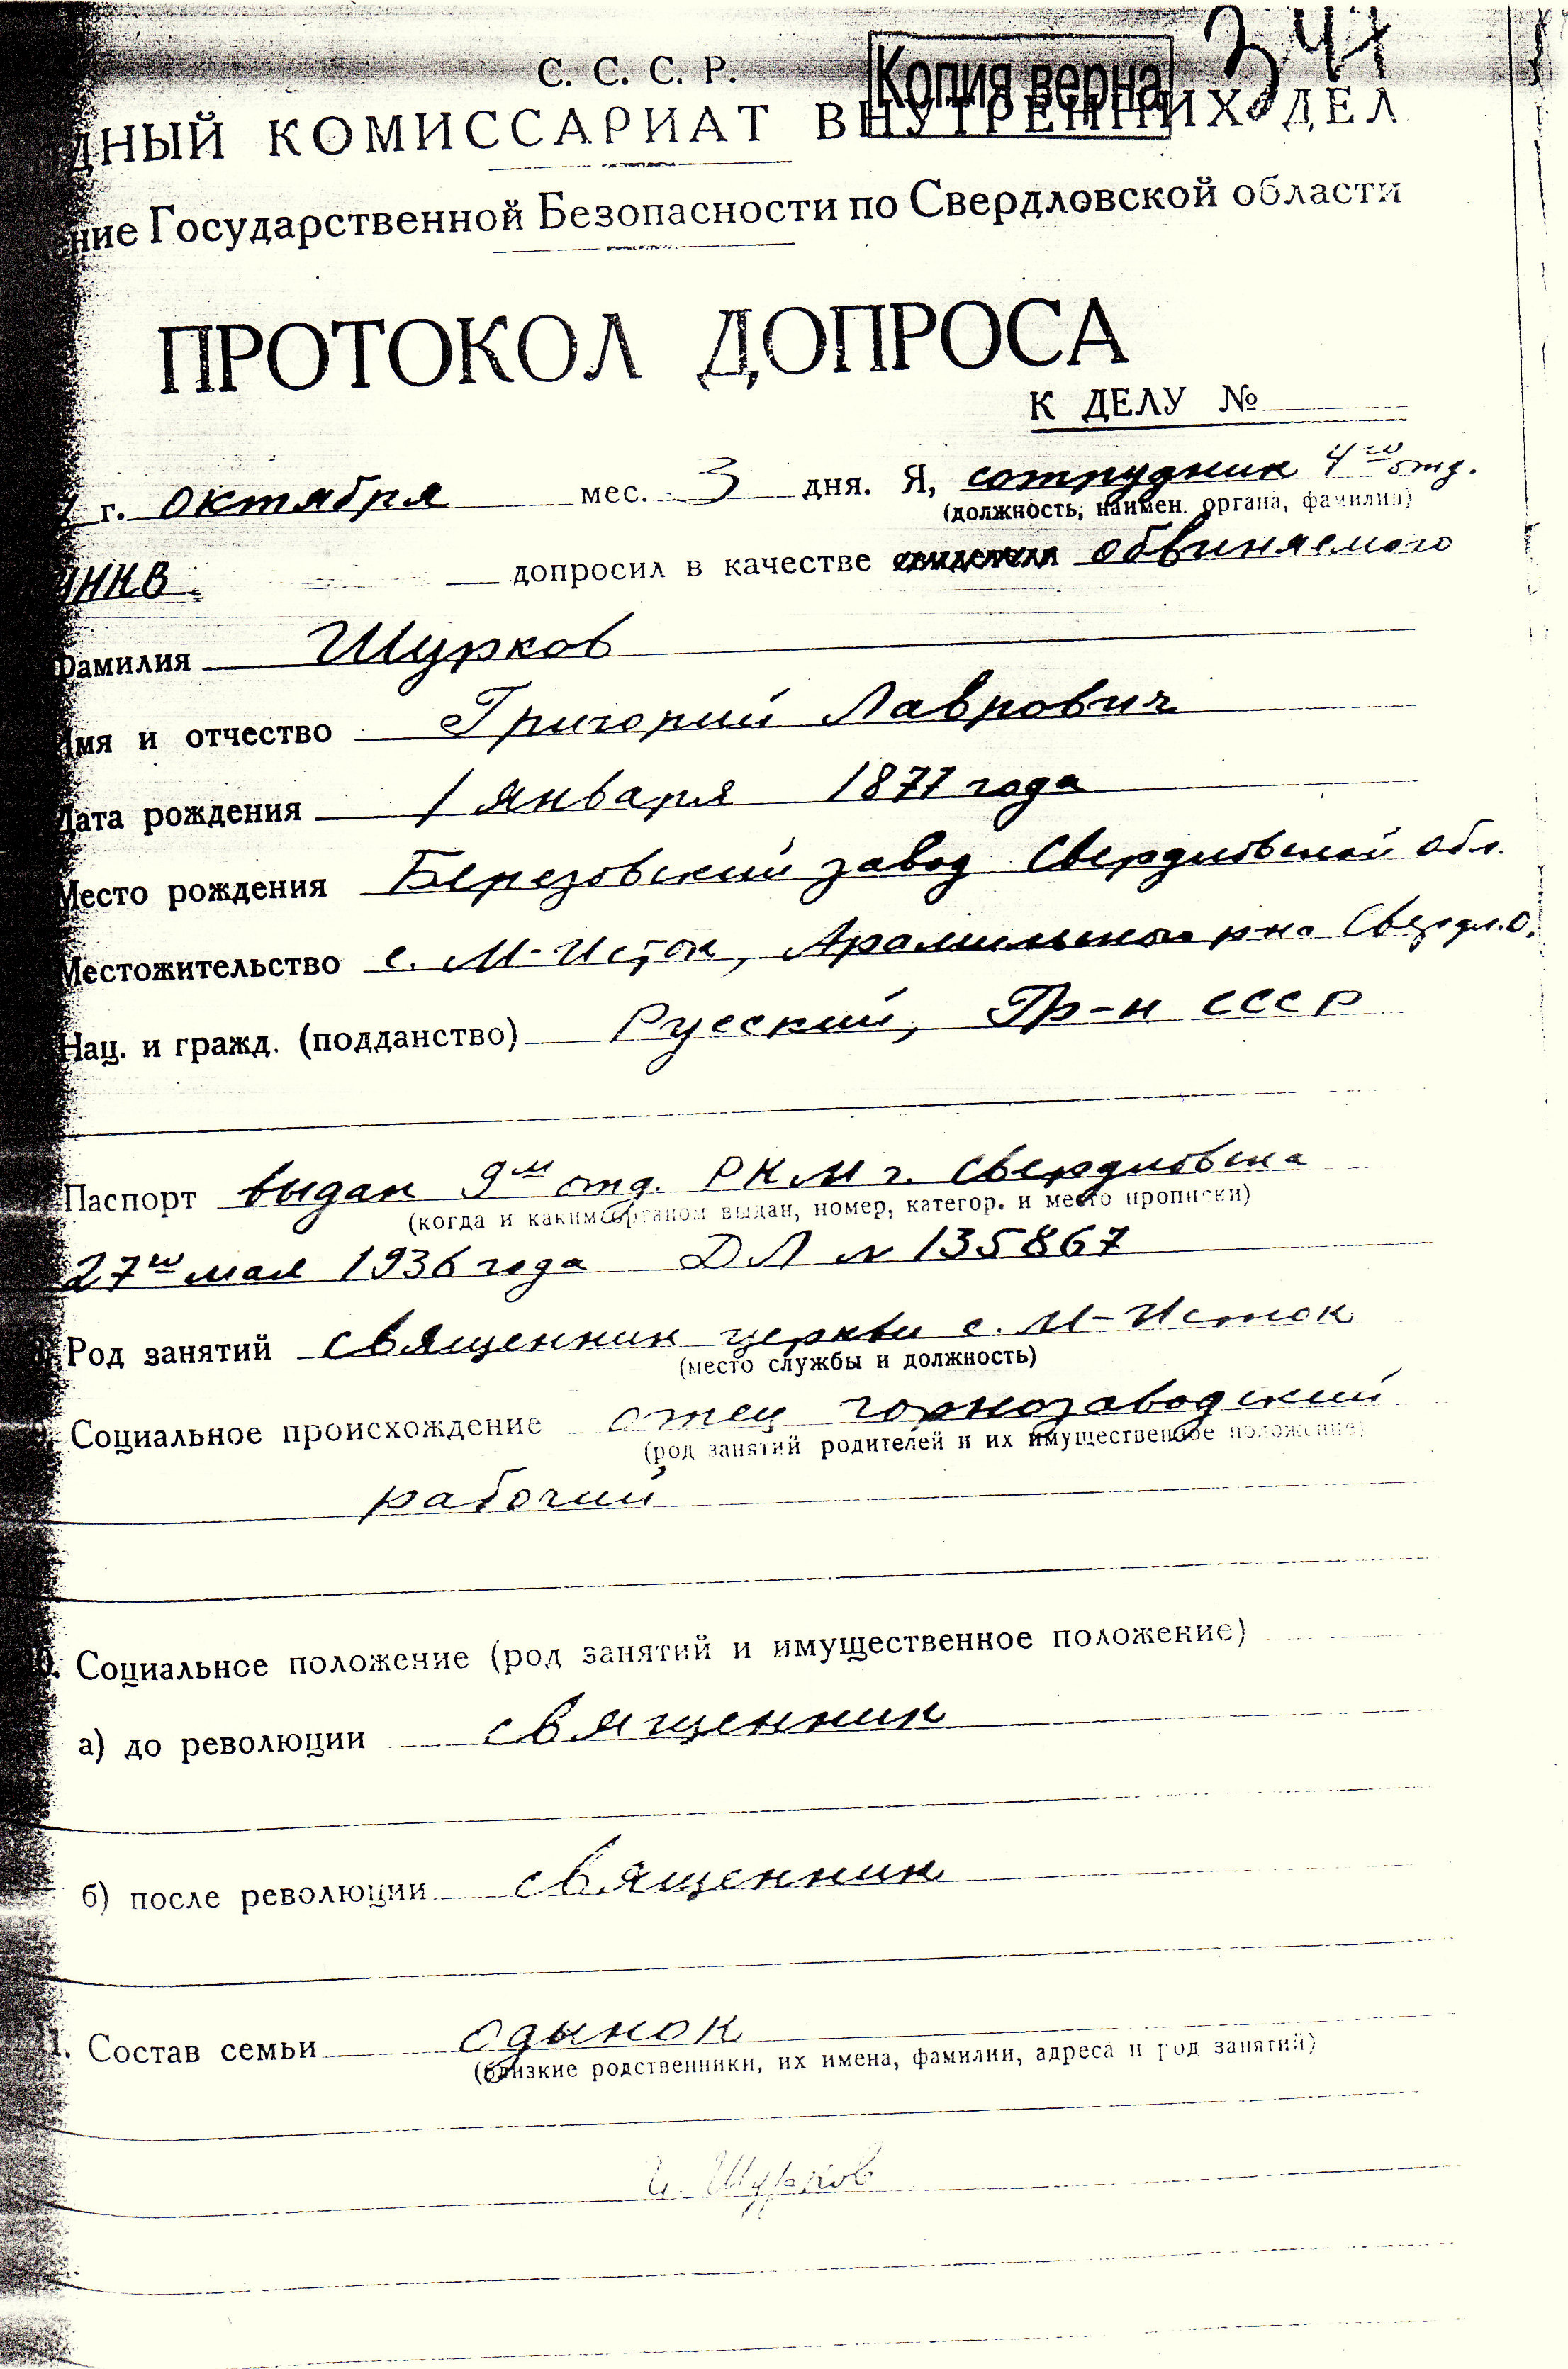 С. С. С. Р.
Копия верна
ДНЫЙ КОМИССАРИАТ ВНУТРЕННИХ ДЕЛ
ние Государственной Безопасности по Свердловской области
ПРОТОКОЛ ДОПРОСА
К ДЕЛУ №
г. октября мес. 3 дня. Я, сотрудник 4го отд.
(должность, наимен. органа, фамилия)
допросил в качестве свидетеля обвиняемого
Фамилия Шурков
Имя и отчество Григорий Лаврович
Дата рождения 1 января 1877 года
Место рождения Березовский завод Свердловской обл.
Местожительство с. М-Исток, Арамильского р-на Свердл. о.
Нац. и гражд. (подданство) Русский, Гр-н СССР
Паспорт выдан 9м отд. РКМ г. Свердловска
(когда и каким органом выдан, номер, категор. и место прописки)
27го мая 1936 года ДЛ № 135867
Род занятий священник церкви с. М-Исток
(место службы и должность)
9. Социальное происхождение отец горнозаводский
(род занятий родителей и их имущественное положение)
рабочий
10. Социальное положение (род занятий и имущественное положение)
а) до революции священник
б) после революции священник
11. Состав семьи одынок
(близкие родственники, их имена, фамилии, адреса и род занятий)
Шурков